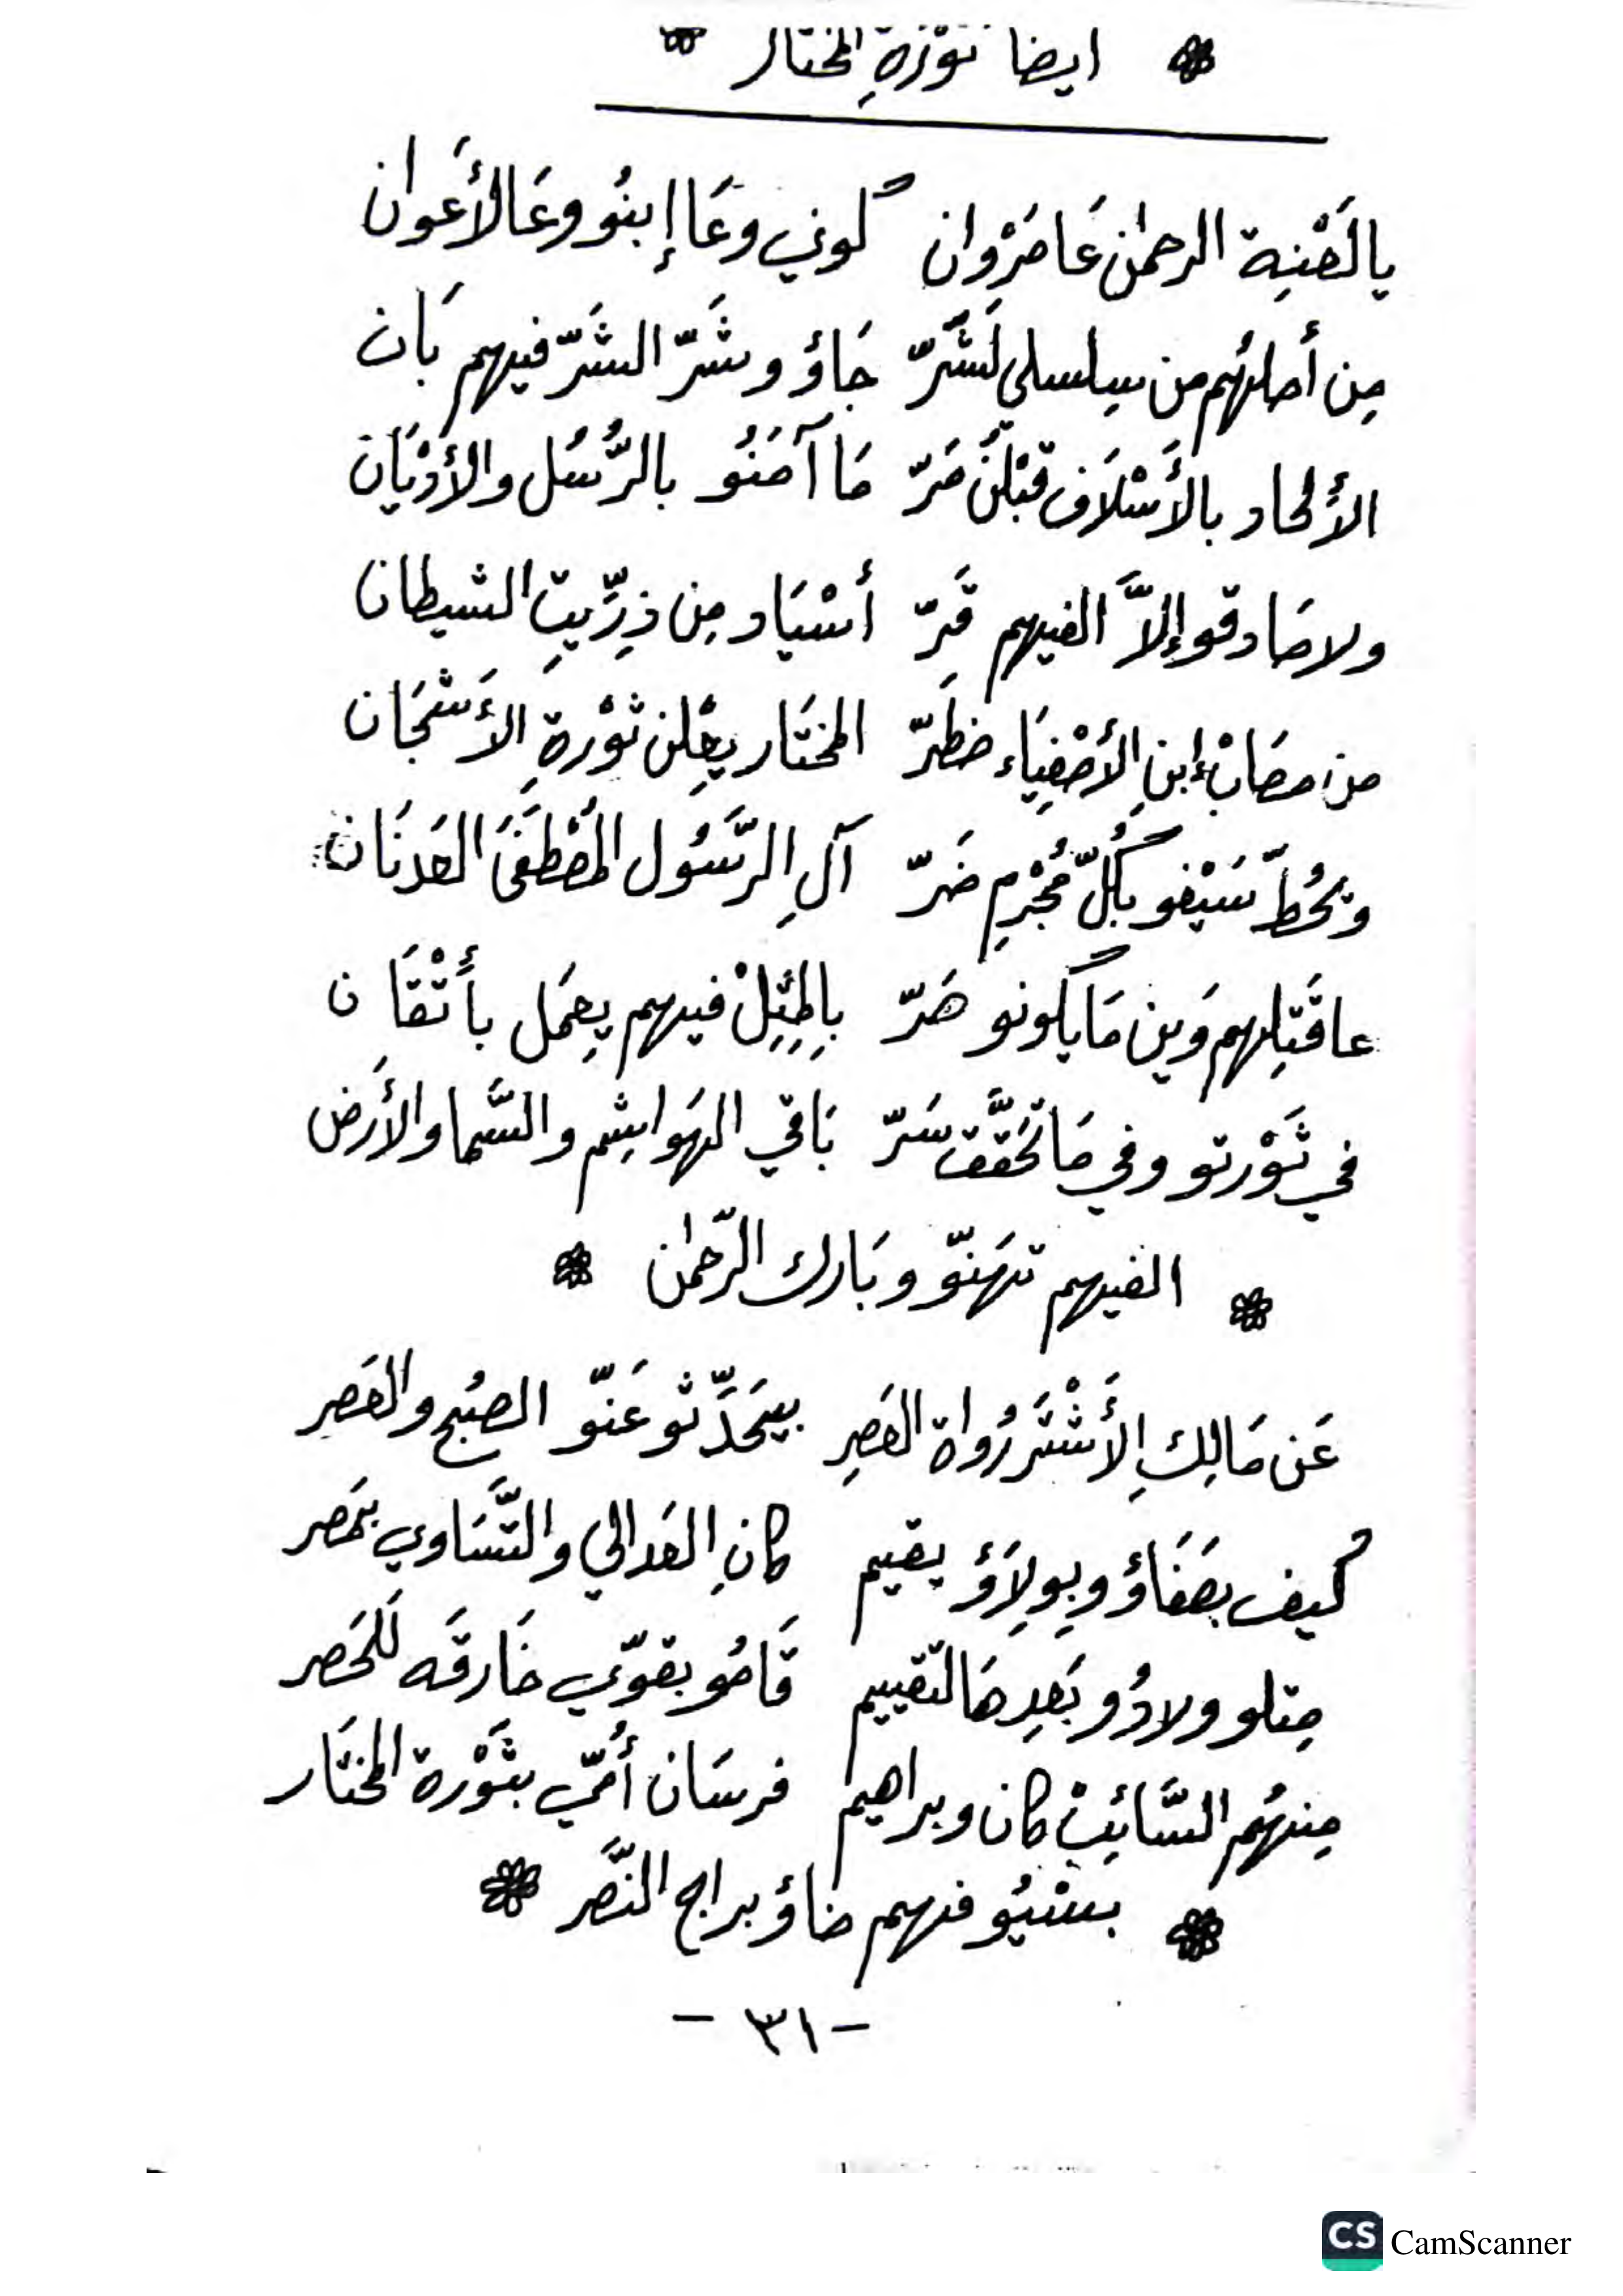 ايضا ثوْرَةِ المختار
يا لَعْنِة الرحمٰن عَا مَرْوان گوني وعَا إبنُو وعَالأَعوان
مِن أصلهُم من سِلسلِي لَشَرّ جَاؤ وشَرّ الشَرّ فيهم بَان
الألحاد بالأَسْلاَف قَبْلُنْ مَرّ مَا آمَنُو بالرُّسُل والأَدْيَان
ولا صَادقو إلاَّ الفيهم قَرّ أسْيَاد مِن ذِرِّيتِ الشيطان
من مصَابْ إبنِ الأَصْفِيَاء ضطَرّ المختَار يِعْلن ثوْرةِ الأَشْجَان
ويحُطّ سَيْفو بكُلّ مُجْرِم ضَرّ آلِ الرَّسُول المُصْطَفَىَ العَدنَان
عا قَتِلهم وَين مَا يكَونو هَرّ بِالمِتِلْ فيهم يِعمَل بأَتْقَان
في ثَوْرتو وفي مَا تحَقَّق سَرّ بَاقي الهَواشِم والسَّما والأَرض
الفيهم تهَنّو وبَارك الرّحمٰن
عَن مَالِكِ الأَشْتَر رُواة العَصِر بيحَدِّثو عَنّو الصبُح والعَصِر
گيف بصَفَاؤ وبِولاَؤ يقيم كانِ العَدالي والتَّسَاوي بمَصر
مِتلو ولادُو بَعدِ هَالتّقييم قَامُو بقوّي خَارقَه للحَصر
مِنهُم السَّائِبْ كان وبراهيم فرسَان أُمّي بثَوْرة المختَار
بسْيُو فهم ضاؤ براج النَّصر
- ٣١ -
CS CamScanner